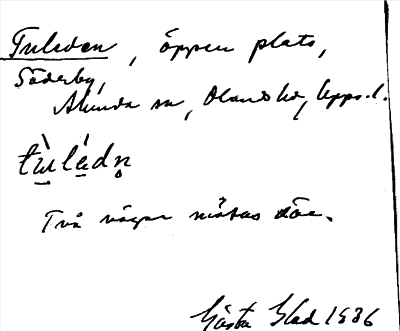 Tuledan, öppen plats,
Söderby,
Alunda sn, Olands hd, Upps. l.
tùlédṇ
Två vägar mötas där.
Gösta Blad 1936